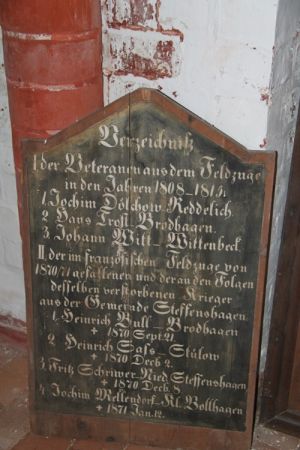 Verzeichniß
I der Veteranen aus dem Feldzuge
in den Jahren 1808-181
1 Jochim Dölschow Reddelich.
2 Hans Trost Brodhagen.
3 Johann Witt – Wittenbeck
II der im französischen Feldzuge von
1870/71 gefallenen und der an den Folgen
desselben verstorbenen Krieger
aus der Gemeinde Steffenshagen
1 Heinrich Bull – Brodhagen
+ 1870 Sept. 21
2 Heinrich Saß – Stülow
+ 1870 Decb. 2
3 Fritz Schriwer Nied. Steffenshagen
+ 1870 Decb. 8
4 Jochim Mellendorf Kl. Bollhagen
+ 1871 Jan. 12.